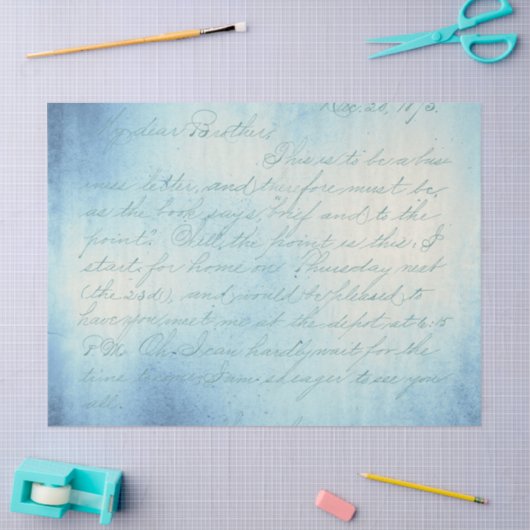 My dear Brother,
This is to be a busi
ness letter, and therefore must be,
as the book says, "brief and to the
point". Well, the point is this, I
start for home on Thursday next
(the 23d), and would be pleased to
have you meet me at the depot at 6:15
P.M. Oh I can hardly wait for the
time to come, I am so eager to see you
all.